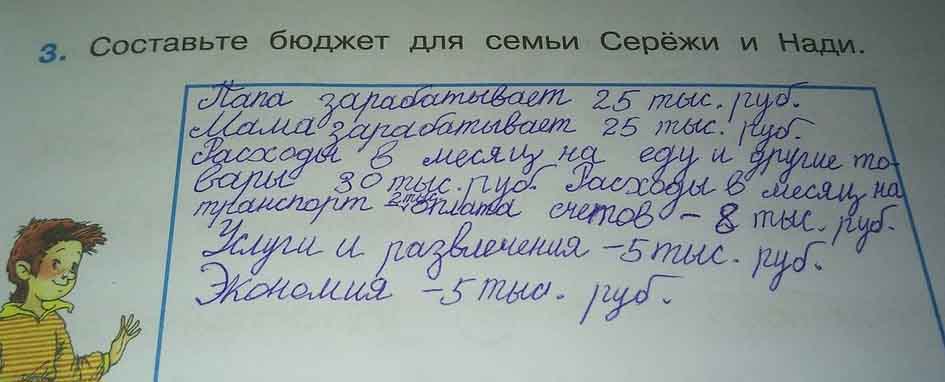 3. Составьте бюджет для семьи Серёжи и Нади.
Папа зарабатывает 25 тыс. руб.
Мама зарабатывает 25 тыс. руб.
Расходы в месяц на еду и другие то-
вары 30 тыс. руб. Расходы в месяц на
транспорт 2 тыс. оплата счетов - 8 тыс. руб.
Услуги и развлечения - 5 тыс. руб.
Экономия - 5 тыс. руб.